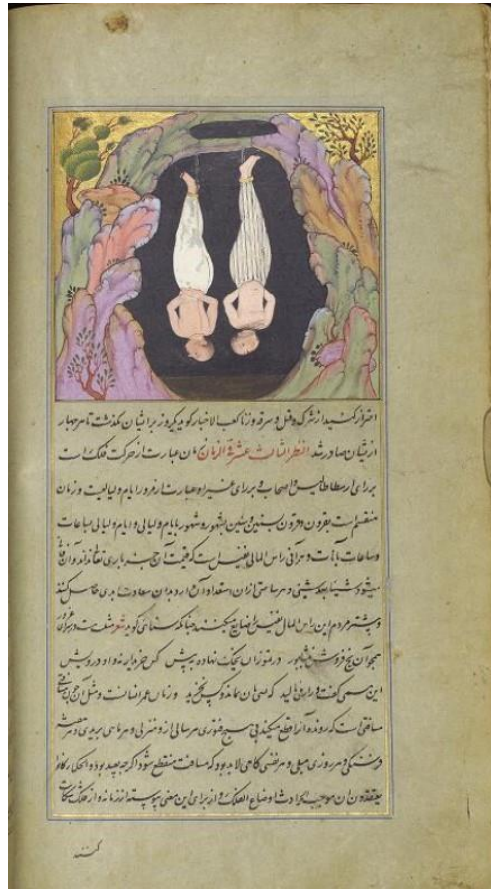 احتراز کنید از شرک و قتل و سرقه و زنا کعب الاخبار کوید یکروز بر ایشان نکذشت تا هر چهار
از ایشان صادر شد النظر الثالث عشر فی الزمان زمان عبارت از حرکت فلک است
بر رای ارسطاطالیس و اصحاب او و بر رای غیر او عبارت از مرور ایام و لیالیست و زمان
منقسم است بقرون و قرون بسنین و سنین بشهور و شهور بایام و لیالی و ایام و لیالی بساعات
و ساعات بآنات و هر آنی راس المالی نفیس است که قیمت آن
میشود شیئا بعد شیئی و هر ساعتی از آن استعداد آن دارد بدان سعادت ابدی حاصل کنند
و بیشتر مردم این راس المال نفیس را ضایع میکنند چنانکه سنائی کوید شعر مثلت هست در سرای غرور
همچو آن یخ فروش نیشابور در تموز آن یخک نهاده به پیش کس خریدار نه و او درویش
این همی کفت و زار می نالید که بسی مان نماند و کس نخرید و زمان عمر انسانست و مثل آن چون
مسافتی است که رونده آنرا قطع میکند بی هیچ فتوری هر سالی ازو منزلی و هر ماهی بریدی و هر
فرسنکی و هر روزی میلی و هر نفسی کامی لابد بود که مسافت منقطع شود اکر چه بعید بود و
معتقد اند آن موجب حوادث اوضاع الفلک و از برای این معنی پیوسته از زمانه و از فلک شکایت
کنند